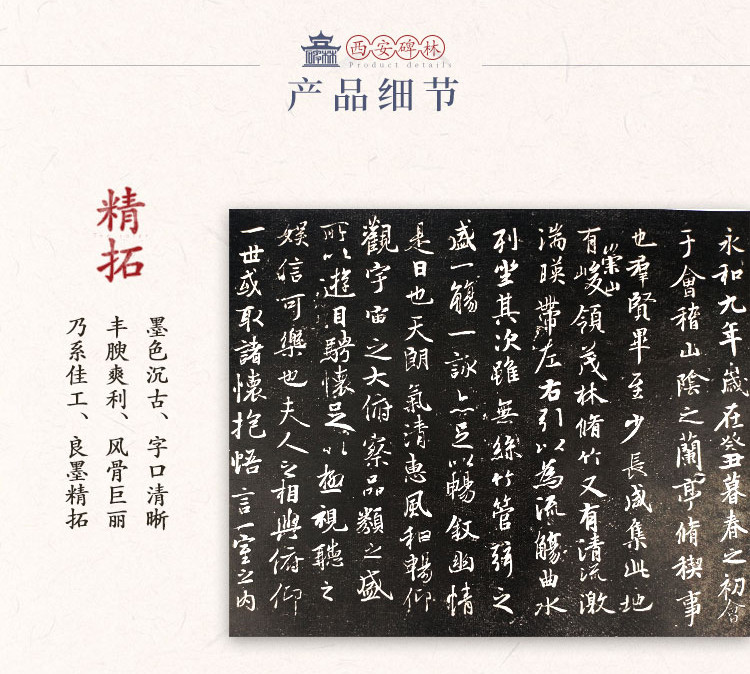 西安碑林
Product details
产品细节
精拓
墨色沉古、字口清晰
丰腴爽利、风骨巨丽
乃系佳工、良墨精拓
永和九年歲在癸丑暮春之初會
于會稽山陰之蘭亭脩稧事
也羣賢畢至少長咸集此地
有崇山峻領茂林脩竹又有清流激
湍暎帶左右引以為流觴曲水
列坐其次雖無絲竹管弦之
盛一觴一詠亦足以暢敘幽情
是日也天朗氣清惠風和暢仰
觀宇宙之大俯察品類之盛
所以遊目騁懷足以極視聽之
娛信可樂也夫人之相與俯仰
一世或取諸懷抱悟言一室之內